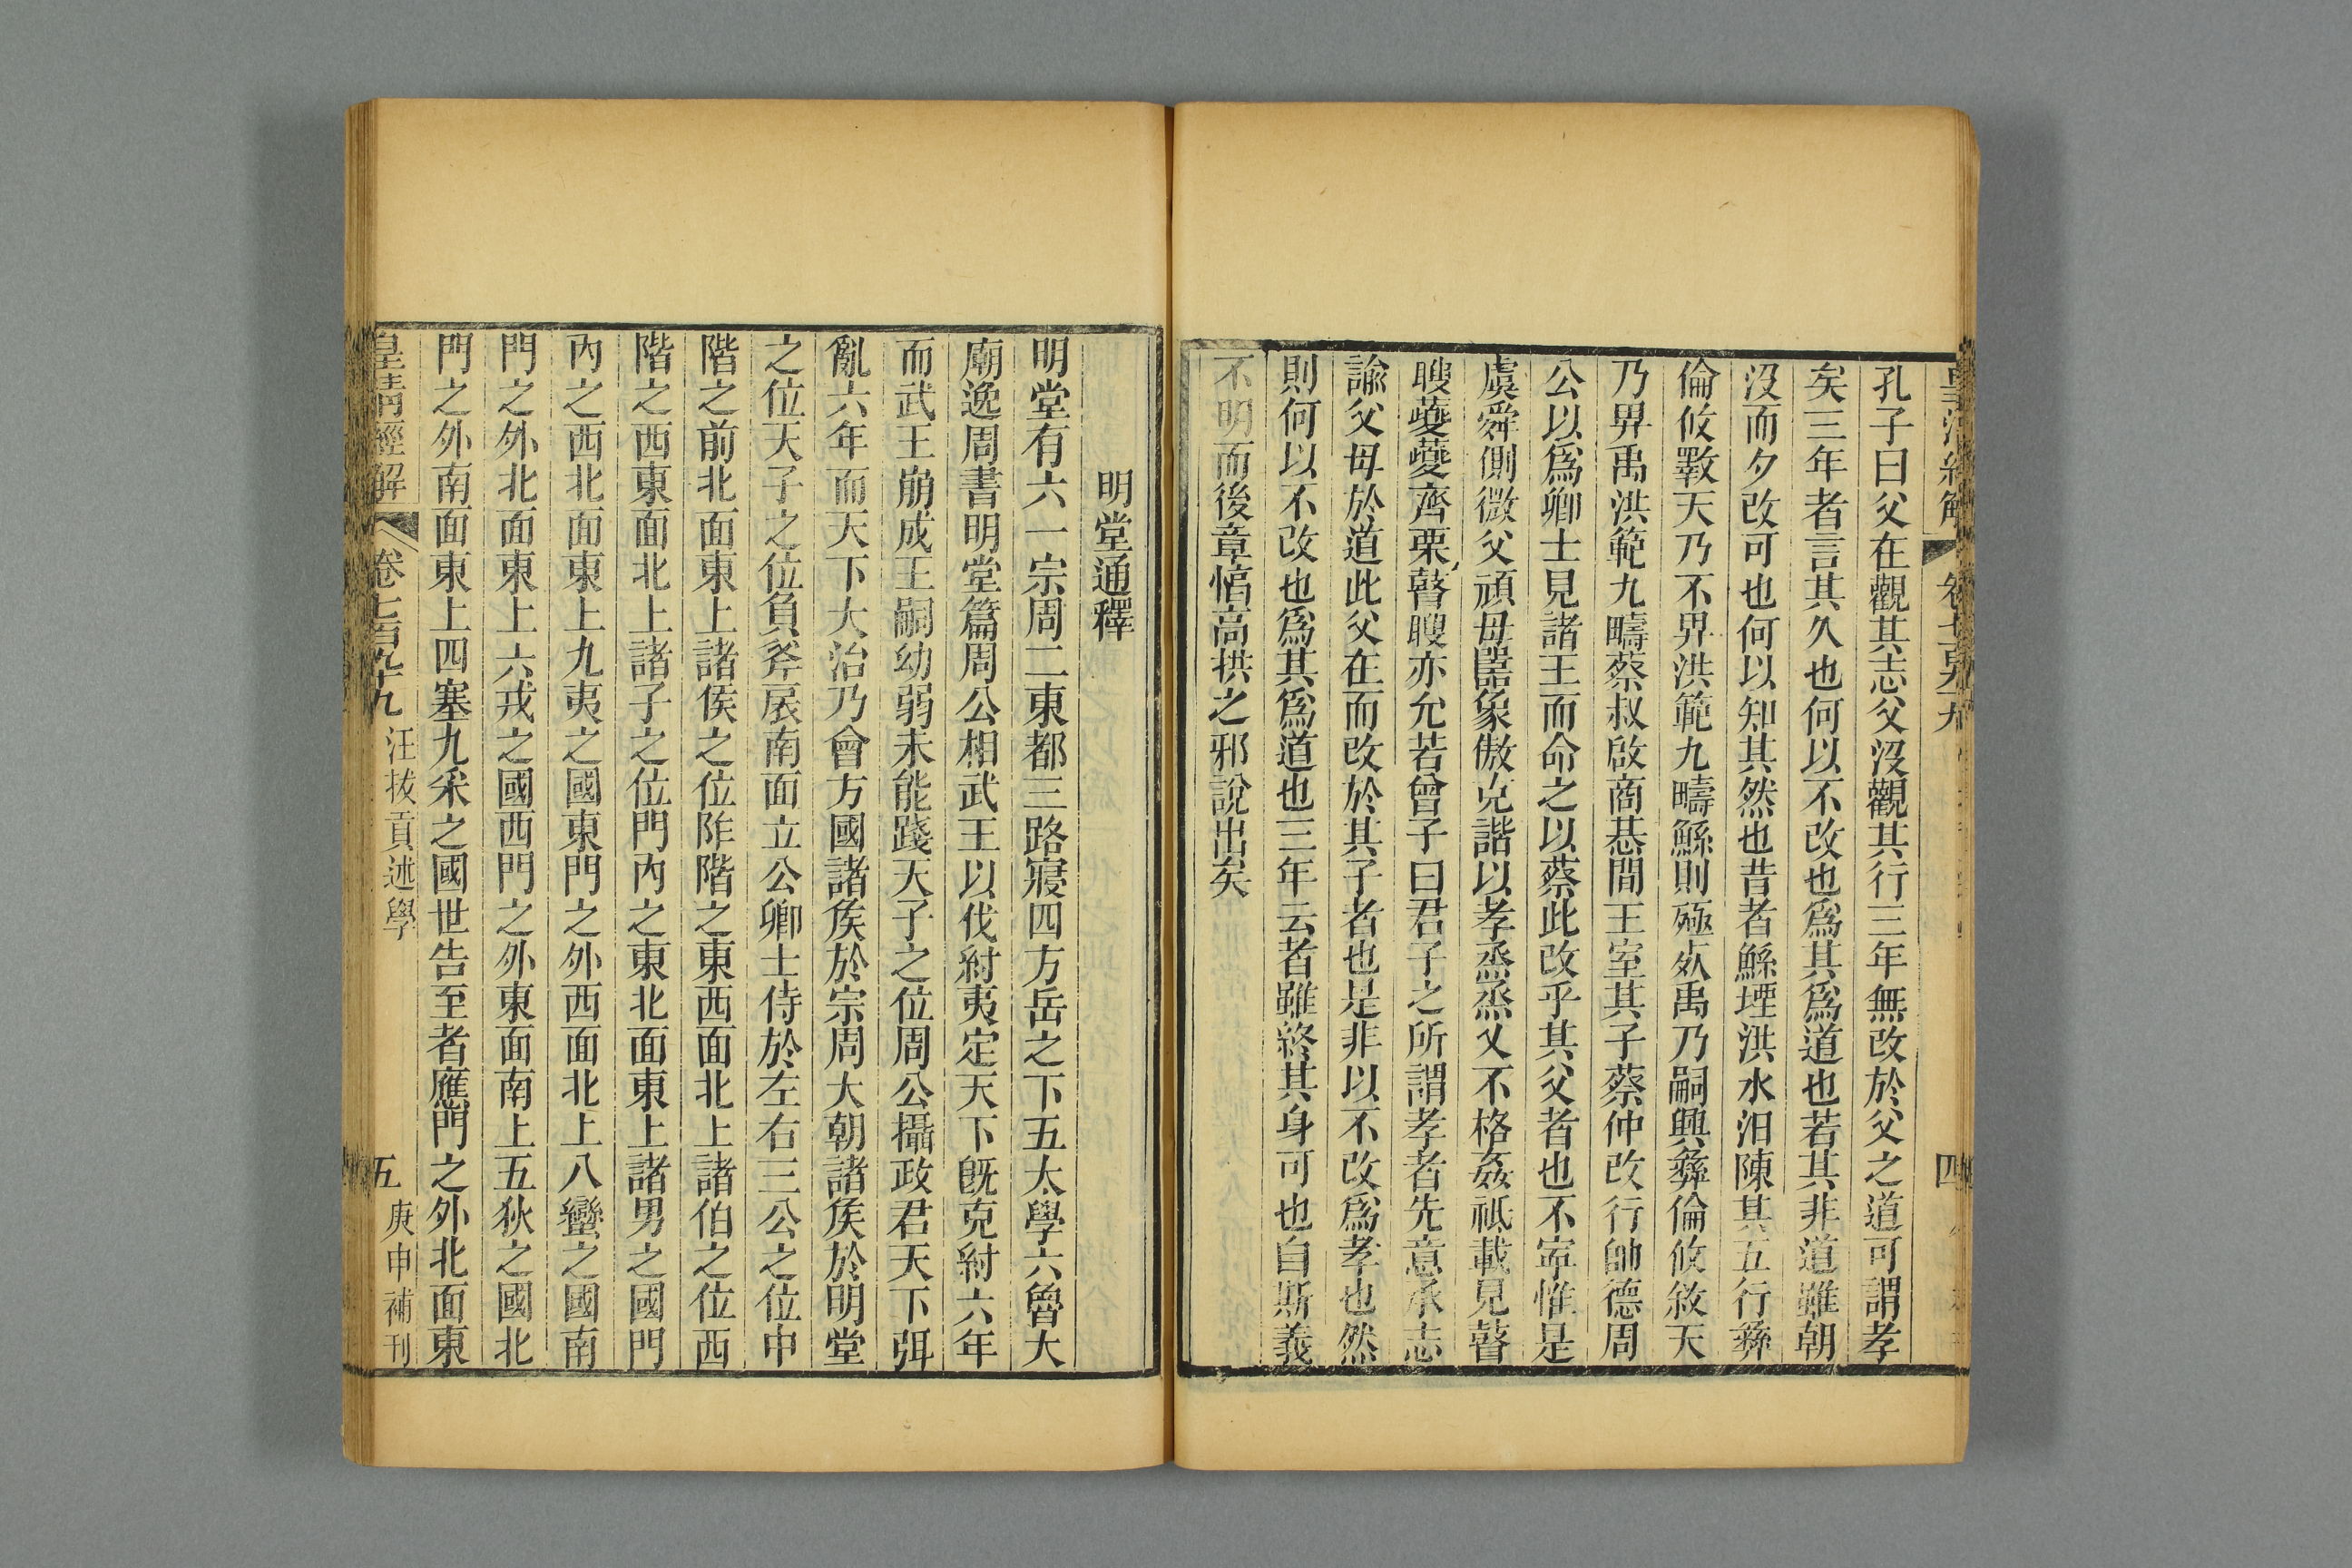 孔子曰父在觀其志父沒觀其行三年無改於父之道可謂孝
矣三年者言其久也何以不改也爲其爲道也若其非道雖朝
沒而夕改可也何以知其然也昔者鯀堙洪水汨陳其五行彝
倫攸斁天乃不畀洪範九疇鯀則殛死禹乃嗣興彝倫攸敘天
乃畀禹洪範九疇蔡叔啟商惎間王室其子蔡仲改行帥德周
公以爲卿士見諸王而命之以蔡此改乎其父者也不寧惟是
虞舜側微父頑母嚚象傲克諧以孝烝烝乂不格姦祗載見瞽
瞍夔夔齊栗瞽瞍亦允若曾子曰君子之所謂孝者先意承志
諭父母於道此父在而改於其子者也是非以不改爲孝也然
則何以不改也爲其爲道也三年云者雖終其身可也自斯義
不明而後章惇高拱之邪說出矣
四
明堂通釋
明堂有六一宗周二東都三路寢四方岳之下五太學六魯大
廟逸周書明堂篇周公相武王以伐紂夷定天下旣克紂六年
而武王崩成王嗣幼弱未能踐天子之位周公攝政君天下弭
亂六年而天下大治乃會方國諸矦於宗周大朝諸矦於明堂
之位天子之位負斧扆南面立公卿士侍於左右三公之位中
階之前北面東上諸侯之位阼階之東西面北上諸伯之位西
階之西東面北上諸子之位門內之東北面東上諸男之國門
內之西北面東上九夷之國東門之外西面北上八蠻之國南
門之外北面東上六戎之國西門之外東面南上五狄之國北
門之外南面東上四塞九采之國世告至者應門之外北面東
皇清經解 卷七百九十九 汪拔貢述學 五 庚申補刊